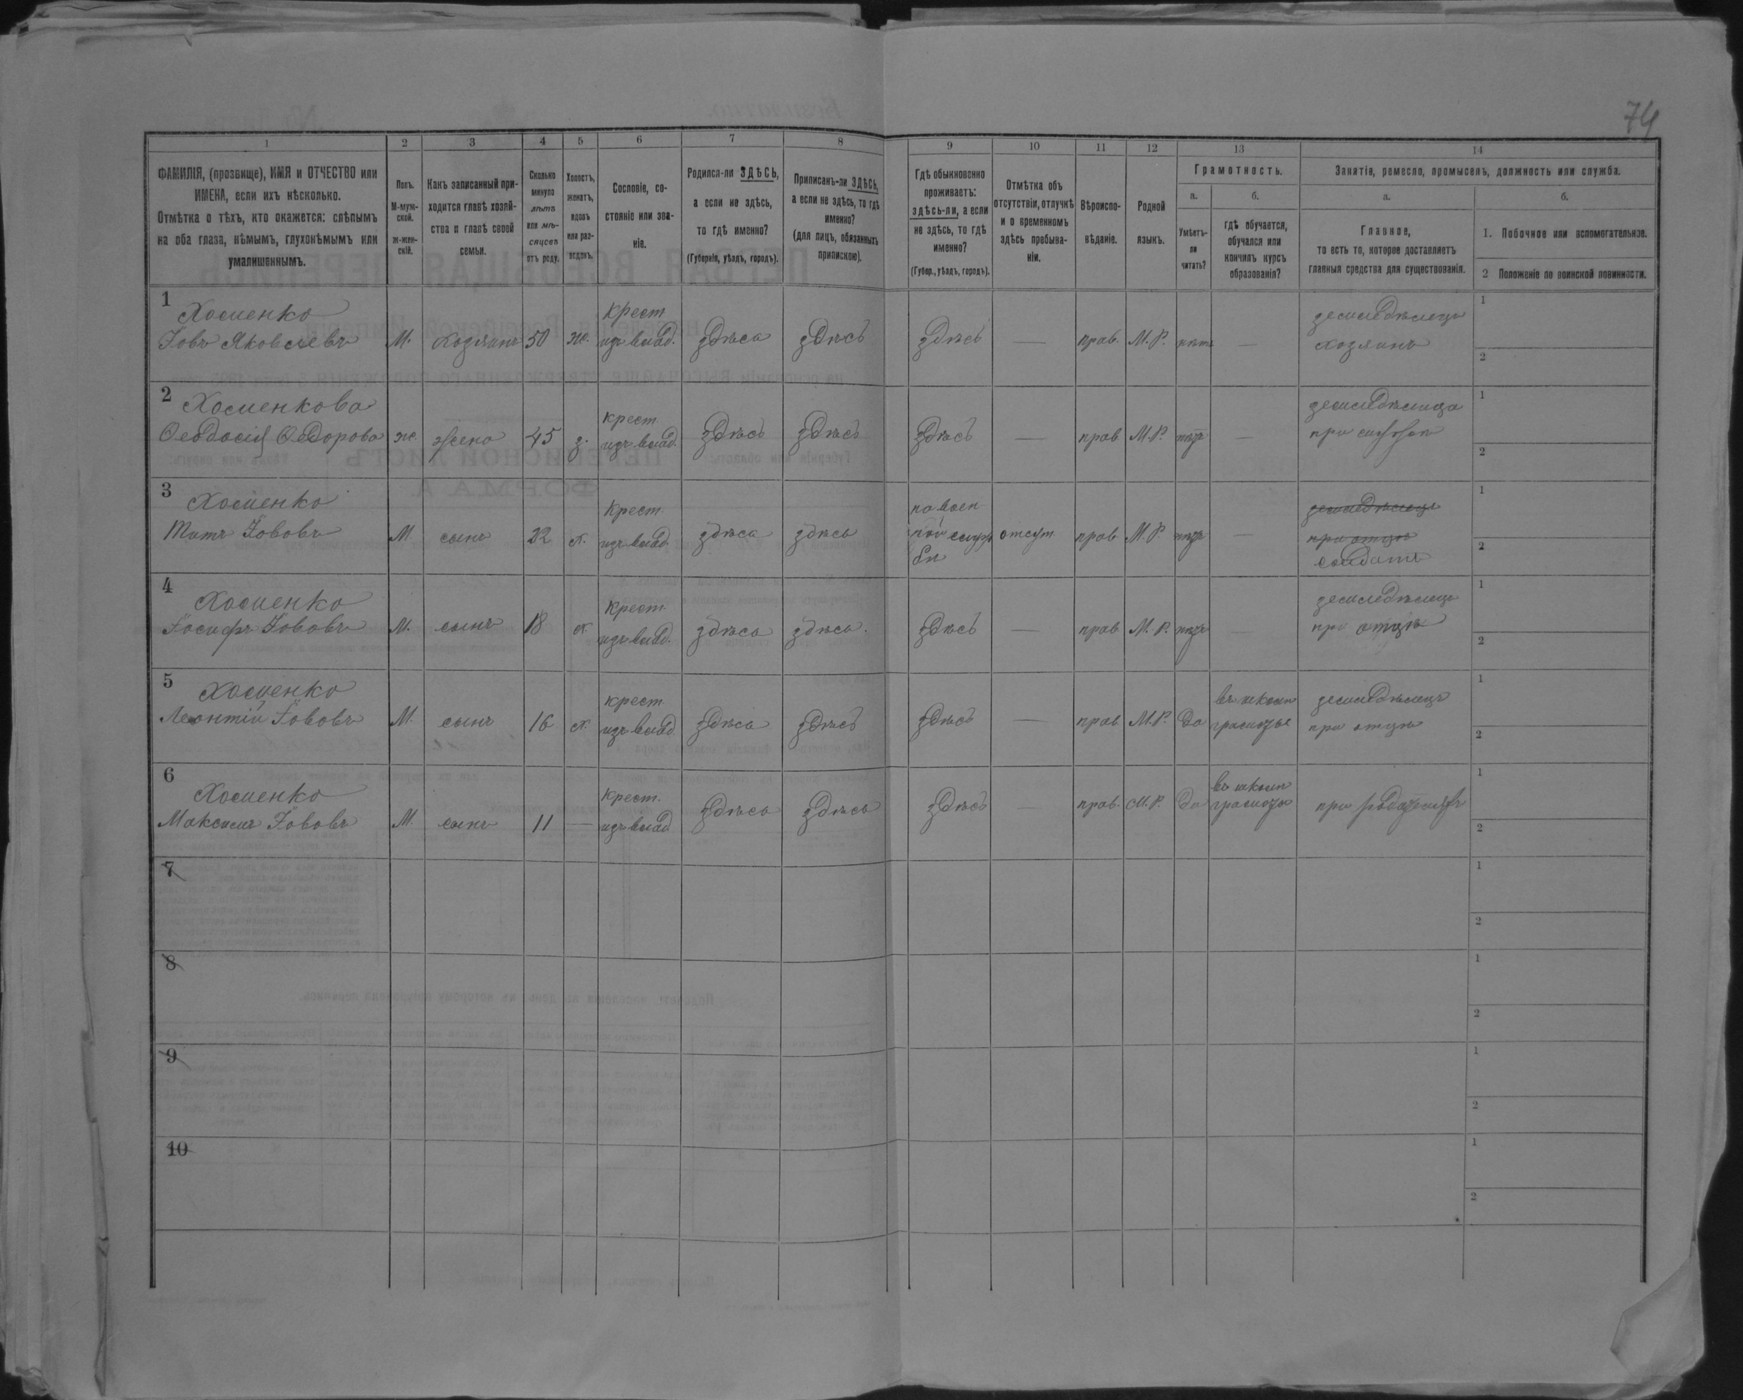 74
1 2 3 4 5 6 7 8 9 10 11 12 13 14
ФАМИЛІЯ, (прозвище), ИМЯ и ОТЧЕСТВО или
ИМЕНА, если ихъ нѣсколько.
Отмѣтка о тѣхъ, кто окажется: слѣпымъ
на оба глаза, нѣмымъ, глухонѣмымъ или
умалишеннымъ.
Полъ.
М-муж-
ской.
ж-жен-
скій.
Какъ записанный при-
ходится главѣ хозяй-
ства и главѣ своей
семьи.
Сколько
минуло
лѣтъ
или мѣ-
сяцевъ
отъ роду.
Холостъ,
женатъ,
вдовъ
или раз-
веденъ.
Сословіе, со-
стояніе или зва-
ніе.
Родился-ли ЗДѢСЬ,
а если не здѣсь,
то гдѣ именно?
(Губернія, уѣздъ, городъ).
Приписанъ-ли ЗДѢСЬ,
а если не здѣсь, то гдѣ
именно?
(для лицъ, обязанныхъ
припискою).
Гдѣ обыкновенно
проживаетъ:
здѣсь-ли, а если
не здѣсь, то гдѣ
именно?
(Губер., уѣздъ, городъ).
Отмѣтка объ
отсутствіи, отлучкѣ
и о временномъ
здѣсь пребыва-
ніи.
Вѣроиспо-
вѣданіе.
Родной
языкъ.
Грамотность.
а. б.
Умѣетъ-
ли
читать?
гдѣ обучается,
обучался или
кончилъ курсъ
образованія?
Занятіе, ремесло, промыселъ, должность или служба.
а. б.
Главное,
то есть то, которое доставляетъ
главныя средства для существованія.
1. Побочное или вспомогательное.
2 Положеніе по воинской повинности.
1 Хоменко крест земледѣлецъ 1
Іовъ Яковлевъ М. хозяинъ 50 ж. изъ влад. здѣсь здѣсь здѣсь — прав. М.Р. нѣтъ — хозяинъ 2
2 Хоменкова крест земледѣлица 1
Ѳеодосія Ѳедорова ж. жена 45 з. изъ влад. здѣсь здѣсь здѣсь — прав М.Р. — при 2
3 Хоменко крест земледѣлецъ 1
Титъ Іововъ М сынъ 22 х. изъ влад. здѣсь здѣсь отсут. прав М.Р. — при отцѣ 2
солдатъ
4 Хоменко крест. земледѣлецъ 1
Іосифъ Іововъ М. сынъ 18 х изъ влад. здѣсь здѣсь. здѣсь — прав М.Р. — при отцѣ 2
5 Хоменко крест въ школѣ земледѣлецъ 1
Леонтій Іововъ М. сынъ 16 х. изъ влад здѣсь здѣсь здѣсь — прав М.Р. да грамотѣ при отцѣ 2
6 Хоменко крест. въ школѣ 1
Максимъ Іововъ М. сынъ 11 — изъ влад здѣсь здѣсь здѣсь — прав М.Р. да грамотѣ при 2
7 1
2
8 1
2
9 1
2
10 1
2